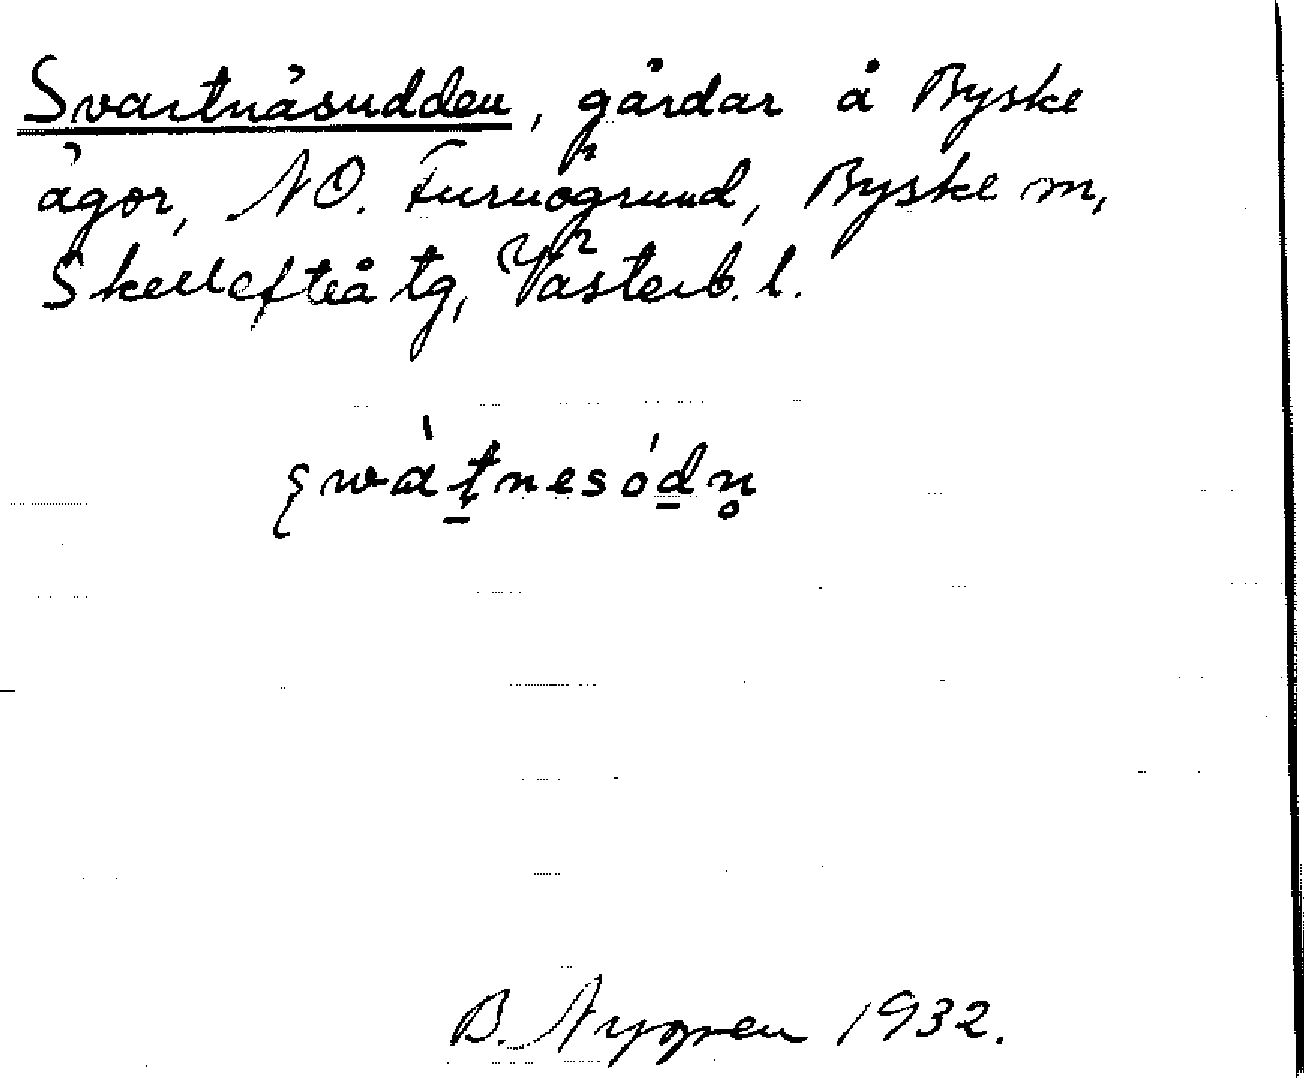 Svartnäsudden, gårdar å Byske
ägor, NO. Furuögrund, Byske sn,
Skellefteå tg, Västerb. l.
swàtnesódn̥
B. Nygren 1932.